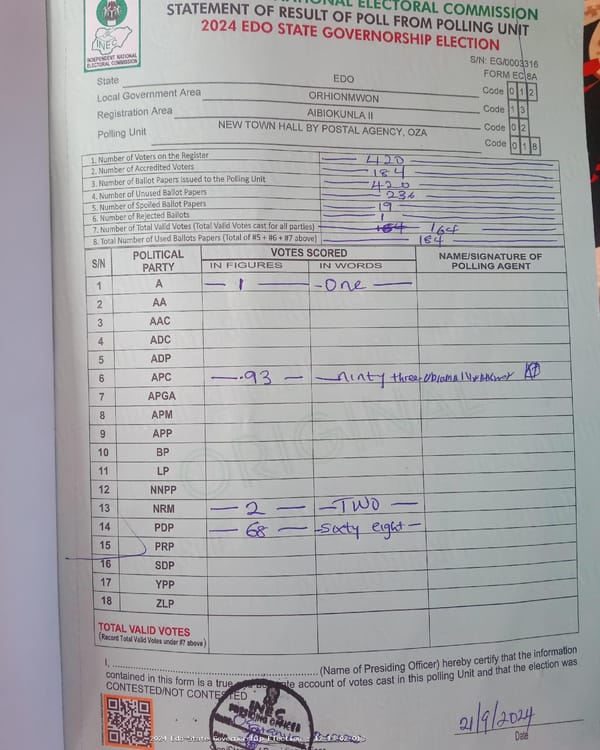 NATIONAL ELECTORAL COMMISSION
STATEMENT OF RESULT OF POLL FROM POLLING UNIT
2024 EDO STATE GOVERNORSHIP ELECTION
INEC
INDEPENDENT NATIONAL ELECTORAL COMMISSION
S/N: EG/0003316
FORM EC 8A
State EDO Code 0 1 2
Local Government Area ORHIONMWON Code 1 3
Registration Area AIBIOKUNLA II Code 0 2
Polling Unit NEW TOWN HALL BY POSTAL AGENCY, OZA Code 0 1 8
1. Number of Voters on the Register 420
2. Number of Accredited Voters 184
3. Number of Ballot Papers Issued to the Polling Unit 420
4. Number of Unused Ballot Papers 236
5. Number of Spoiled Ballot Papers 19
6. Number of Rejected Ballots 1
7. Number of Total Valid Votes (Total Valid Votes cast for all parties) 164
8. Total Number of Used Ballots Papers (Total of #5 + #6 + #7 above) 184
S/N POLITICAL PARTY VOTES SCORED NAME/SIGNATURE OF POLLING AGENT
IN FIGURES IN WORDS
1 A 1 One
2 AA
3 AAC
4 ADC
5 ADP
6 APC 93 ninty three
7 APGA
8 APM
9 APP
10 BP
11 LP
12 NNPP
13 NRM 2 TWO
14 PDP 68 Sixty eight
15 PRP
16 SDP
17 YPP
18 ZLP
ORIGINAL
TOTAL VALID VOTES
(Record Total Valid Votes under #7 above)
I, (Name of Presiding Officer) hereby certify that the information
contained in this form is a true account of votes cast in this polling Unit and that the election was
CONTESTED/NOT CONTESTED
INEC
21/9/2024
Date
2024 Edo State Governorship Election - 12-13-02-018